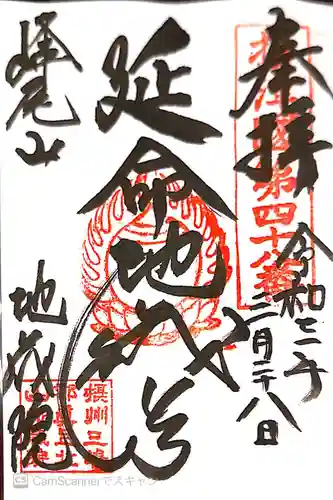 奉拝
摂津国第四十八番
令和二年
月二十八日
延命地蔵尊
尾山
地蔵院
摂州三
CS CamScannerでスキャン